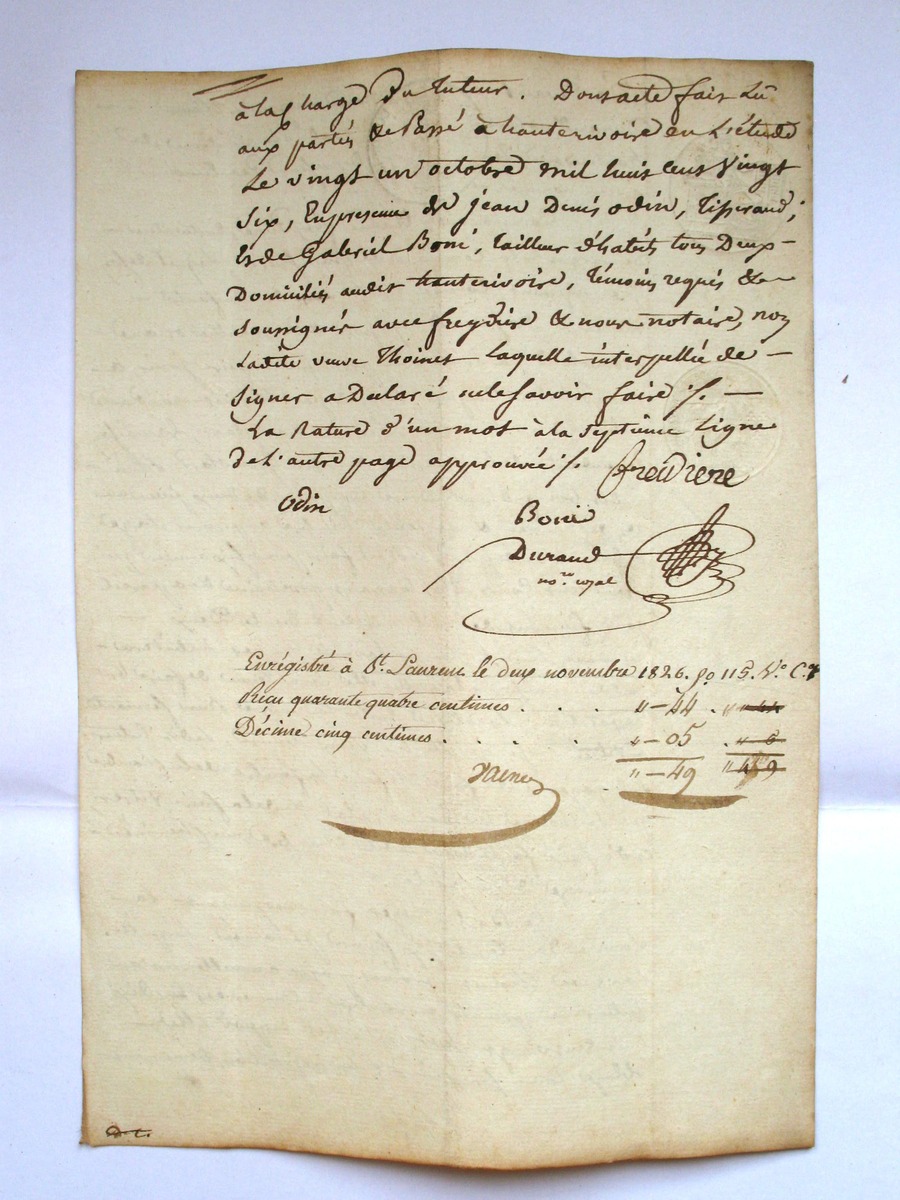 à la charge du tuteur. Dont acte fait Lu
aux parties & Passé à hauterivoire en L'étude
Le vingt un octobre mil huit cent vingt
Six, En presence de jean Denis odin, Tisserand,
Et de Gabriel Boni, tailleur d'habits tous Deux
Domiciliés audit hauterivoire, témoins requis &
soussignés avec freydière & nous notaire, non
Ladite veuve Thoinet laquelle interpellée de
signer a Déclaré ne le savoir faire /.
La Rature d'un mot à la septieme Ligne
de L'autre page approuvée /. freidiere
odin
Boni
Durand
no.re royal
Enrégistré à St. Laurent le deux novembre 1826. fo 115. Vo. C. 7
Reçu quarante quatre centimes . . . " – 44 . " 44
Décime cinq centimes . . . . " – 05 . " 6
" – 49 " 49